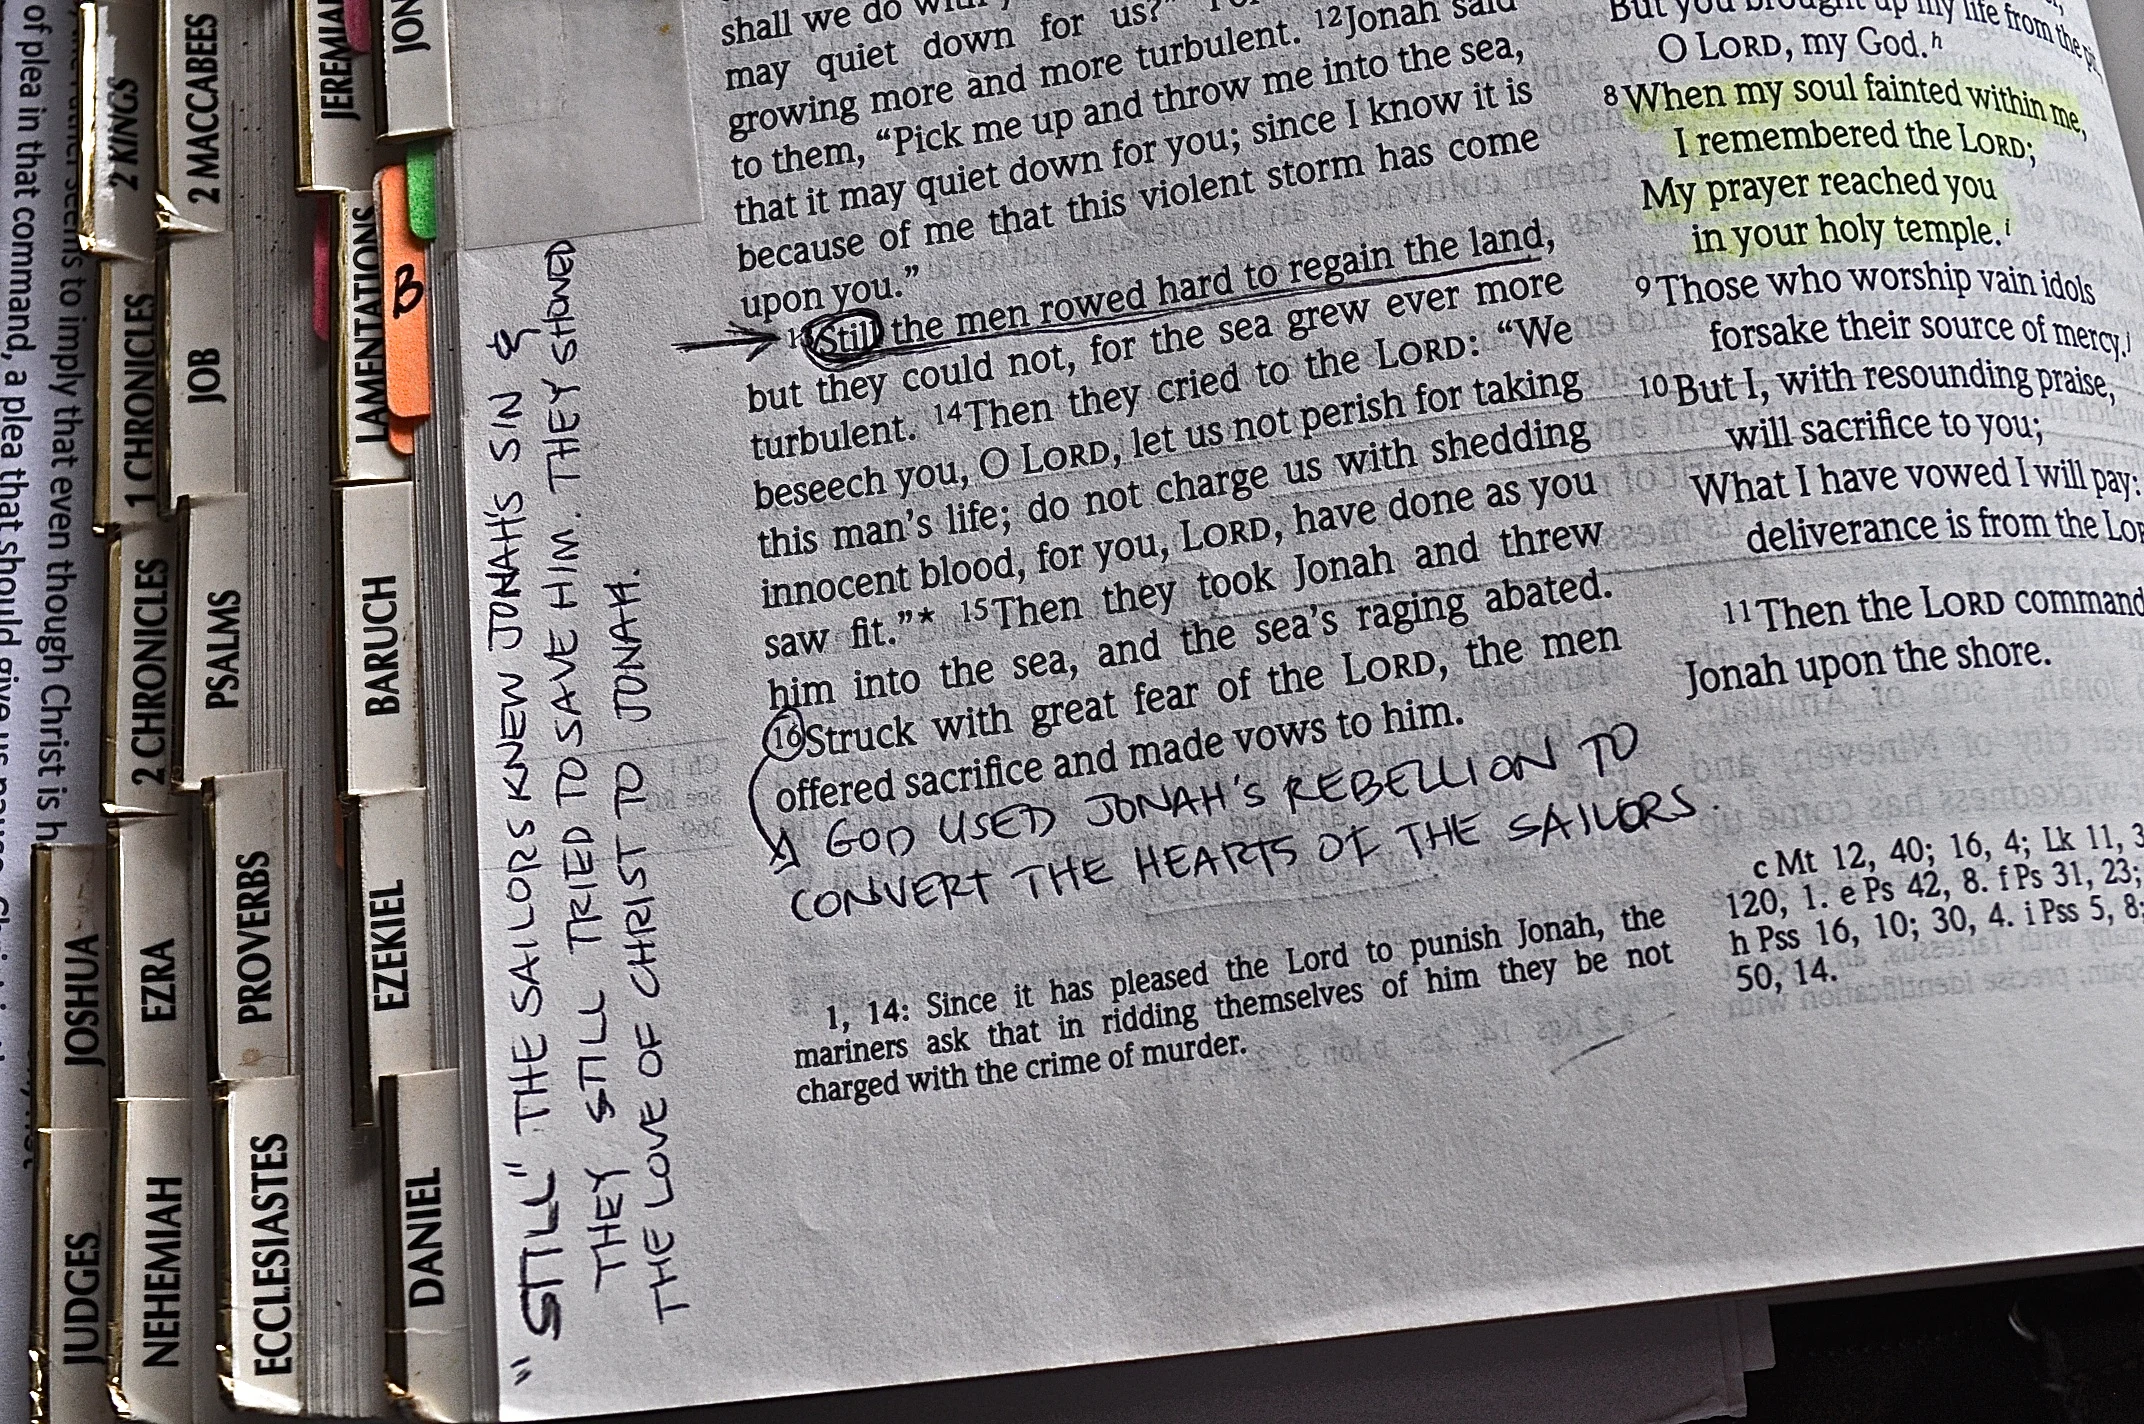 of plea in that command, a plea that should give us pause.
seems to imply that even though Christ is h
2 KINGS
1 CHRONICLES
2 CHRONICLES
JOSHUA
EZRA
JUDGES
NEHEMIAH
2 MACCABEES
JOB
PSALMS
PROVERBS
ECCLESIASTES
JEREMIAH
LAMENTATIONS
BARUCH
EZEKIEL
DANIEL
JON
B
"STILL" THE SAILORS KNEW JONAH'S SIN &
THEY STILL TRIED TO SAVE HIM. THEY SHOWED
THE LOVE OF CHRIST TO JONAH.
shall we do with
may quiet down for us?"
growing more and more turbulent. 12Jonah said
to them, “Pick me up and throw me into the sea,
that it may quiet down for you; since I know it is
because of me that this violent storm has come
upon you.”
13Still the men rowed hard to regain the land,
but they could not, for the sea grew ever more
turbulent. 14Then they cried to the LORD: “We
beseech you, O LORD, let us not perish for taking
this man’s life; do not charge us with shedding
innocent blood, for you, LORD, have done as you
saw fit.”* 15Then they took Jonah and threw
him into the sea, and the sea’s raging abated.
16Struck with great fear of the LORD, the men
offered sacrifice and made vows to him.
GOD USED JONAH'S REBELLION TO
CONVERT THE HEARTS OF THE SAILORS.
1, 14: Since it has pleased the Lord to punish Jonah, the
mariners ask that in ridding themselves of him they be not
charged with the crime of murder.
But you brought up my life from the pit,
O LORD, my God.h
8When my soul fainted within me,
I remembered the LORD;
My prayer reached you
in your holy temple.i
9Those who worship vain idols
forsake their source of mercy.j
10But I, with resounding praise,
will sacrifice to you;
What I have vowed I will pay:
deliverance is from the LOR
11Then the LORD command
Jonah upon the shore.
c Mt 12, 40; 16, 4; Lk 11, 3
120, 1. e Ps 42, 8. f Ps 31, 23;
h Pss 16, 10; 30, 4. i Pss 5, 8;
50, 14.